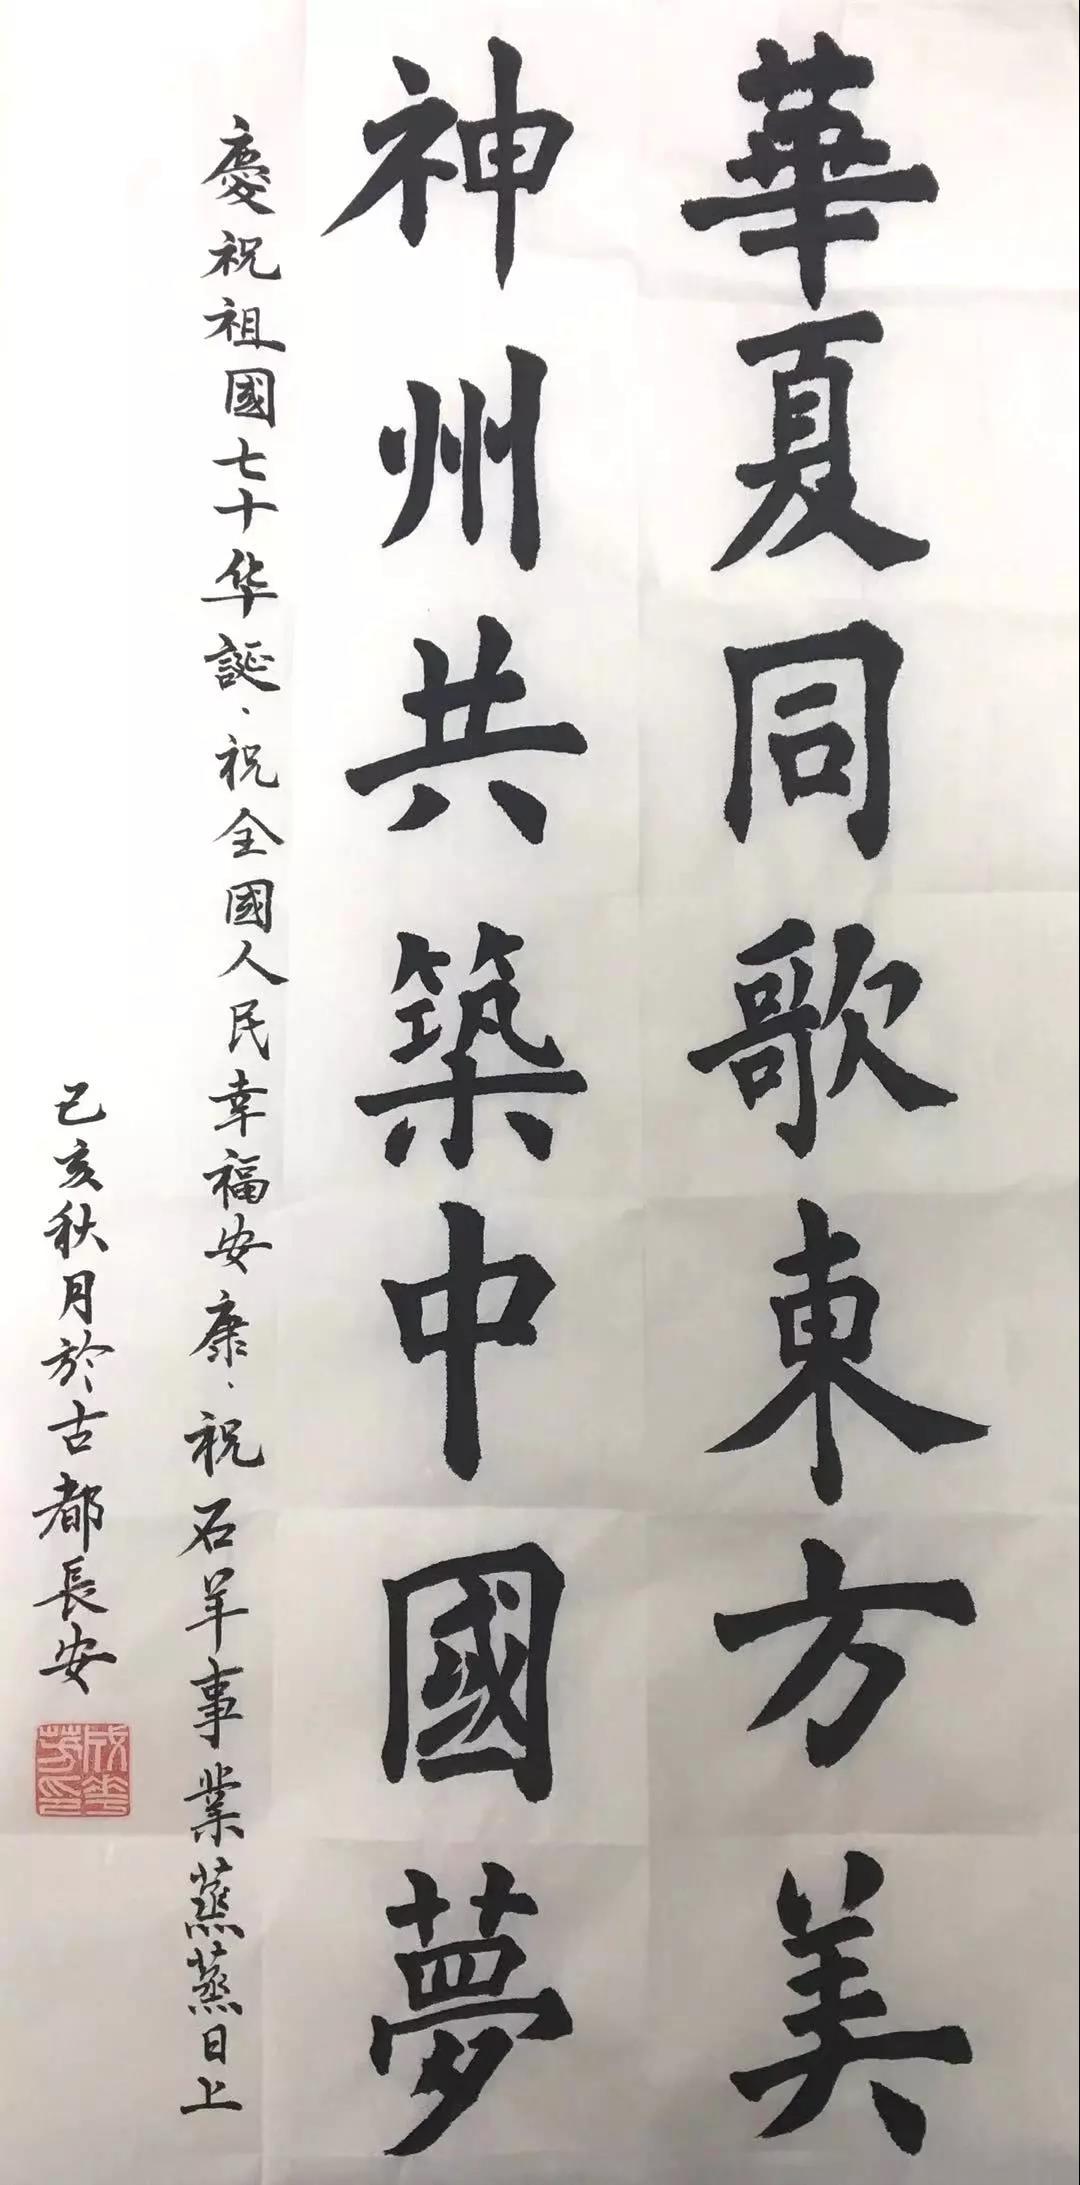 華夏同歌東方美
神州共築中國夢
慶祝祖國七十华誕、祝全國人民幸福安康、祝石羊事業蒸蒸日上
己亥秋月於古都長安